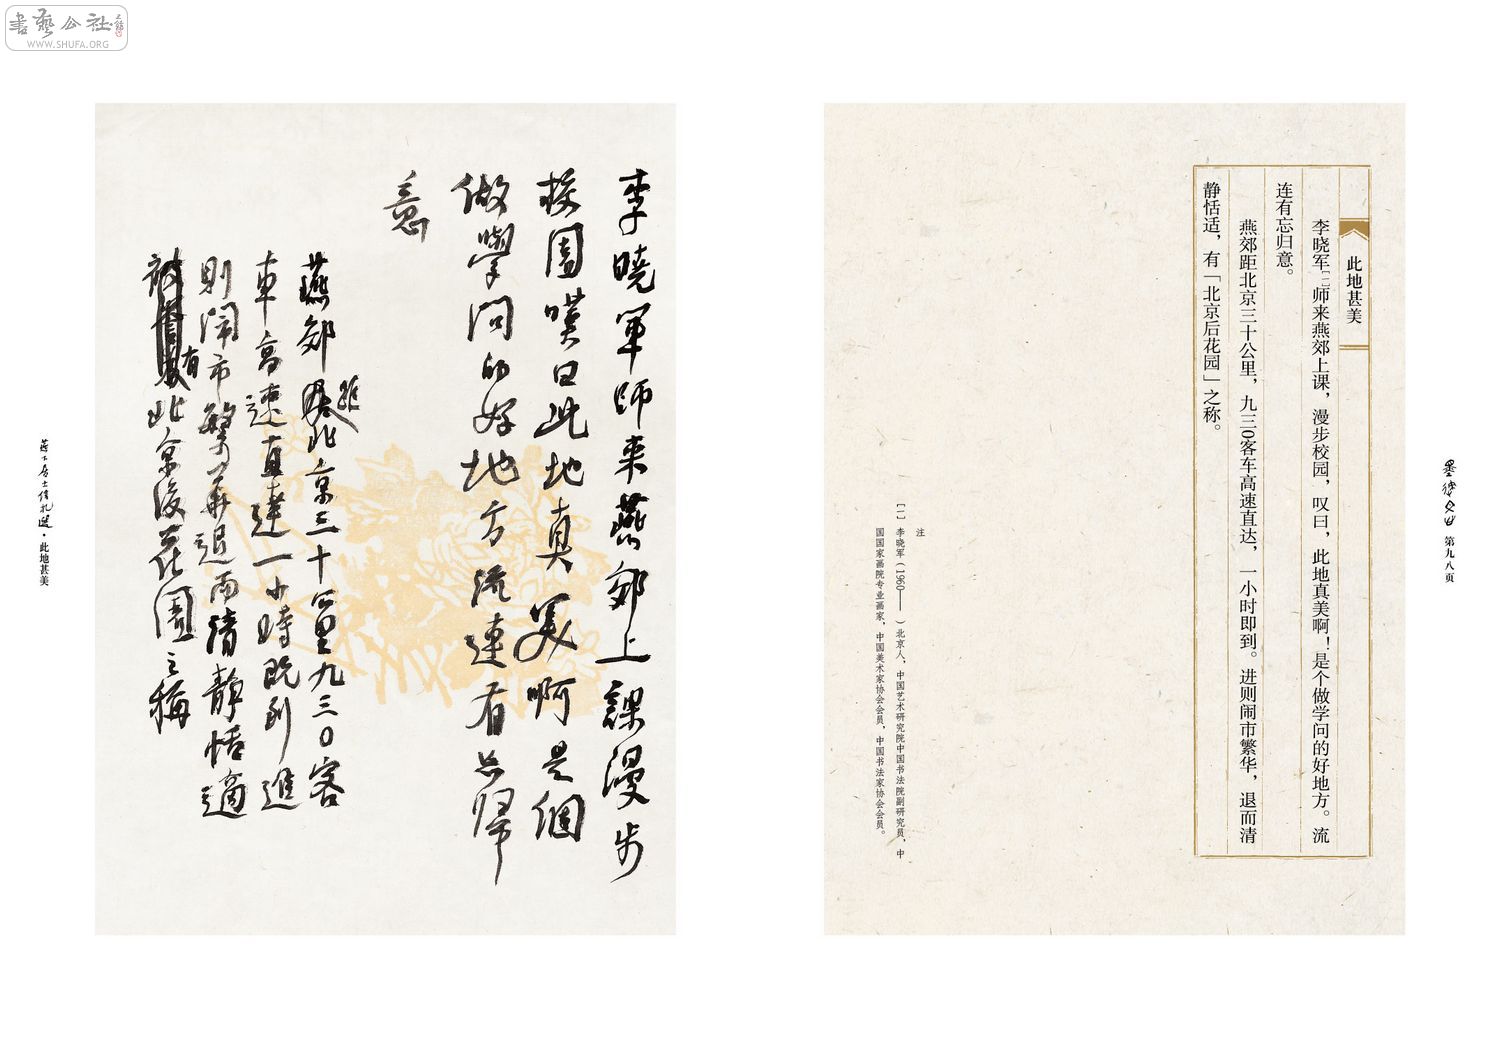 書藝公社
WWW.SHUFA.ORG
此地甚美
李晓军[一]师来燕郊上课，漫步校园，叹曰，此地真美啊！是个做学问的好地方。流
连有忘归意。
燕郊距北京三十公里，九三0客车高速直达，一小时即到。进则闹市繁华，退而清
静恬适，有「北京后花园」之称。
注
[一] 李晓军（1960—— ）北京人，中国艺术研究院中国书法院副研究员，中
国国家画院专业画家，中国美术家协会会员，中国书法家协会会员。
第九八页
李曉軍師来燕郊上課漫步
校園嘆曰此地真美啊是個
做學問的好地方流連有忘歸
意
燕郊距北京三十公里九三0客
車高速直達一小時既到進
則鬧市繁華退而清靜恬適
有北京後花園之稱
·此地甚美